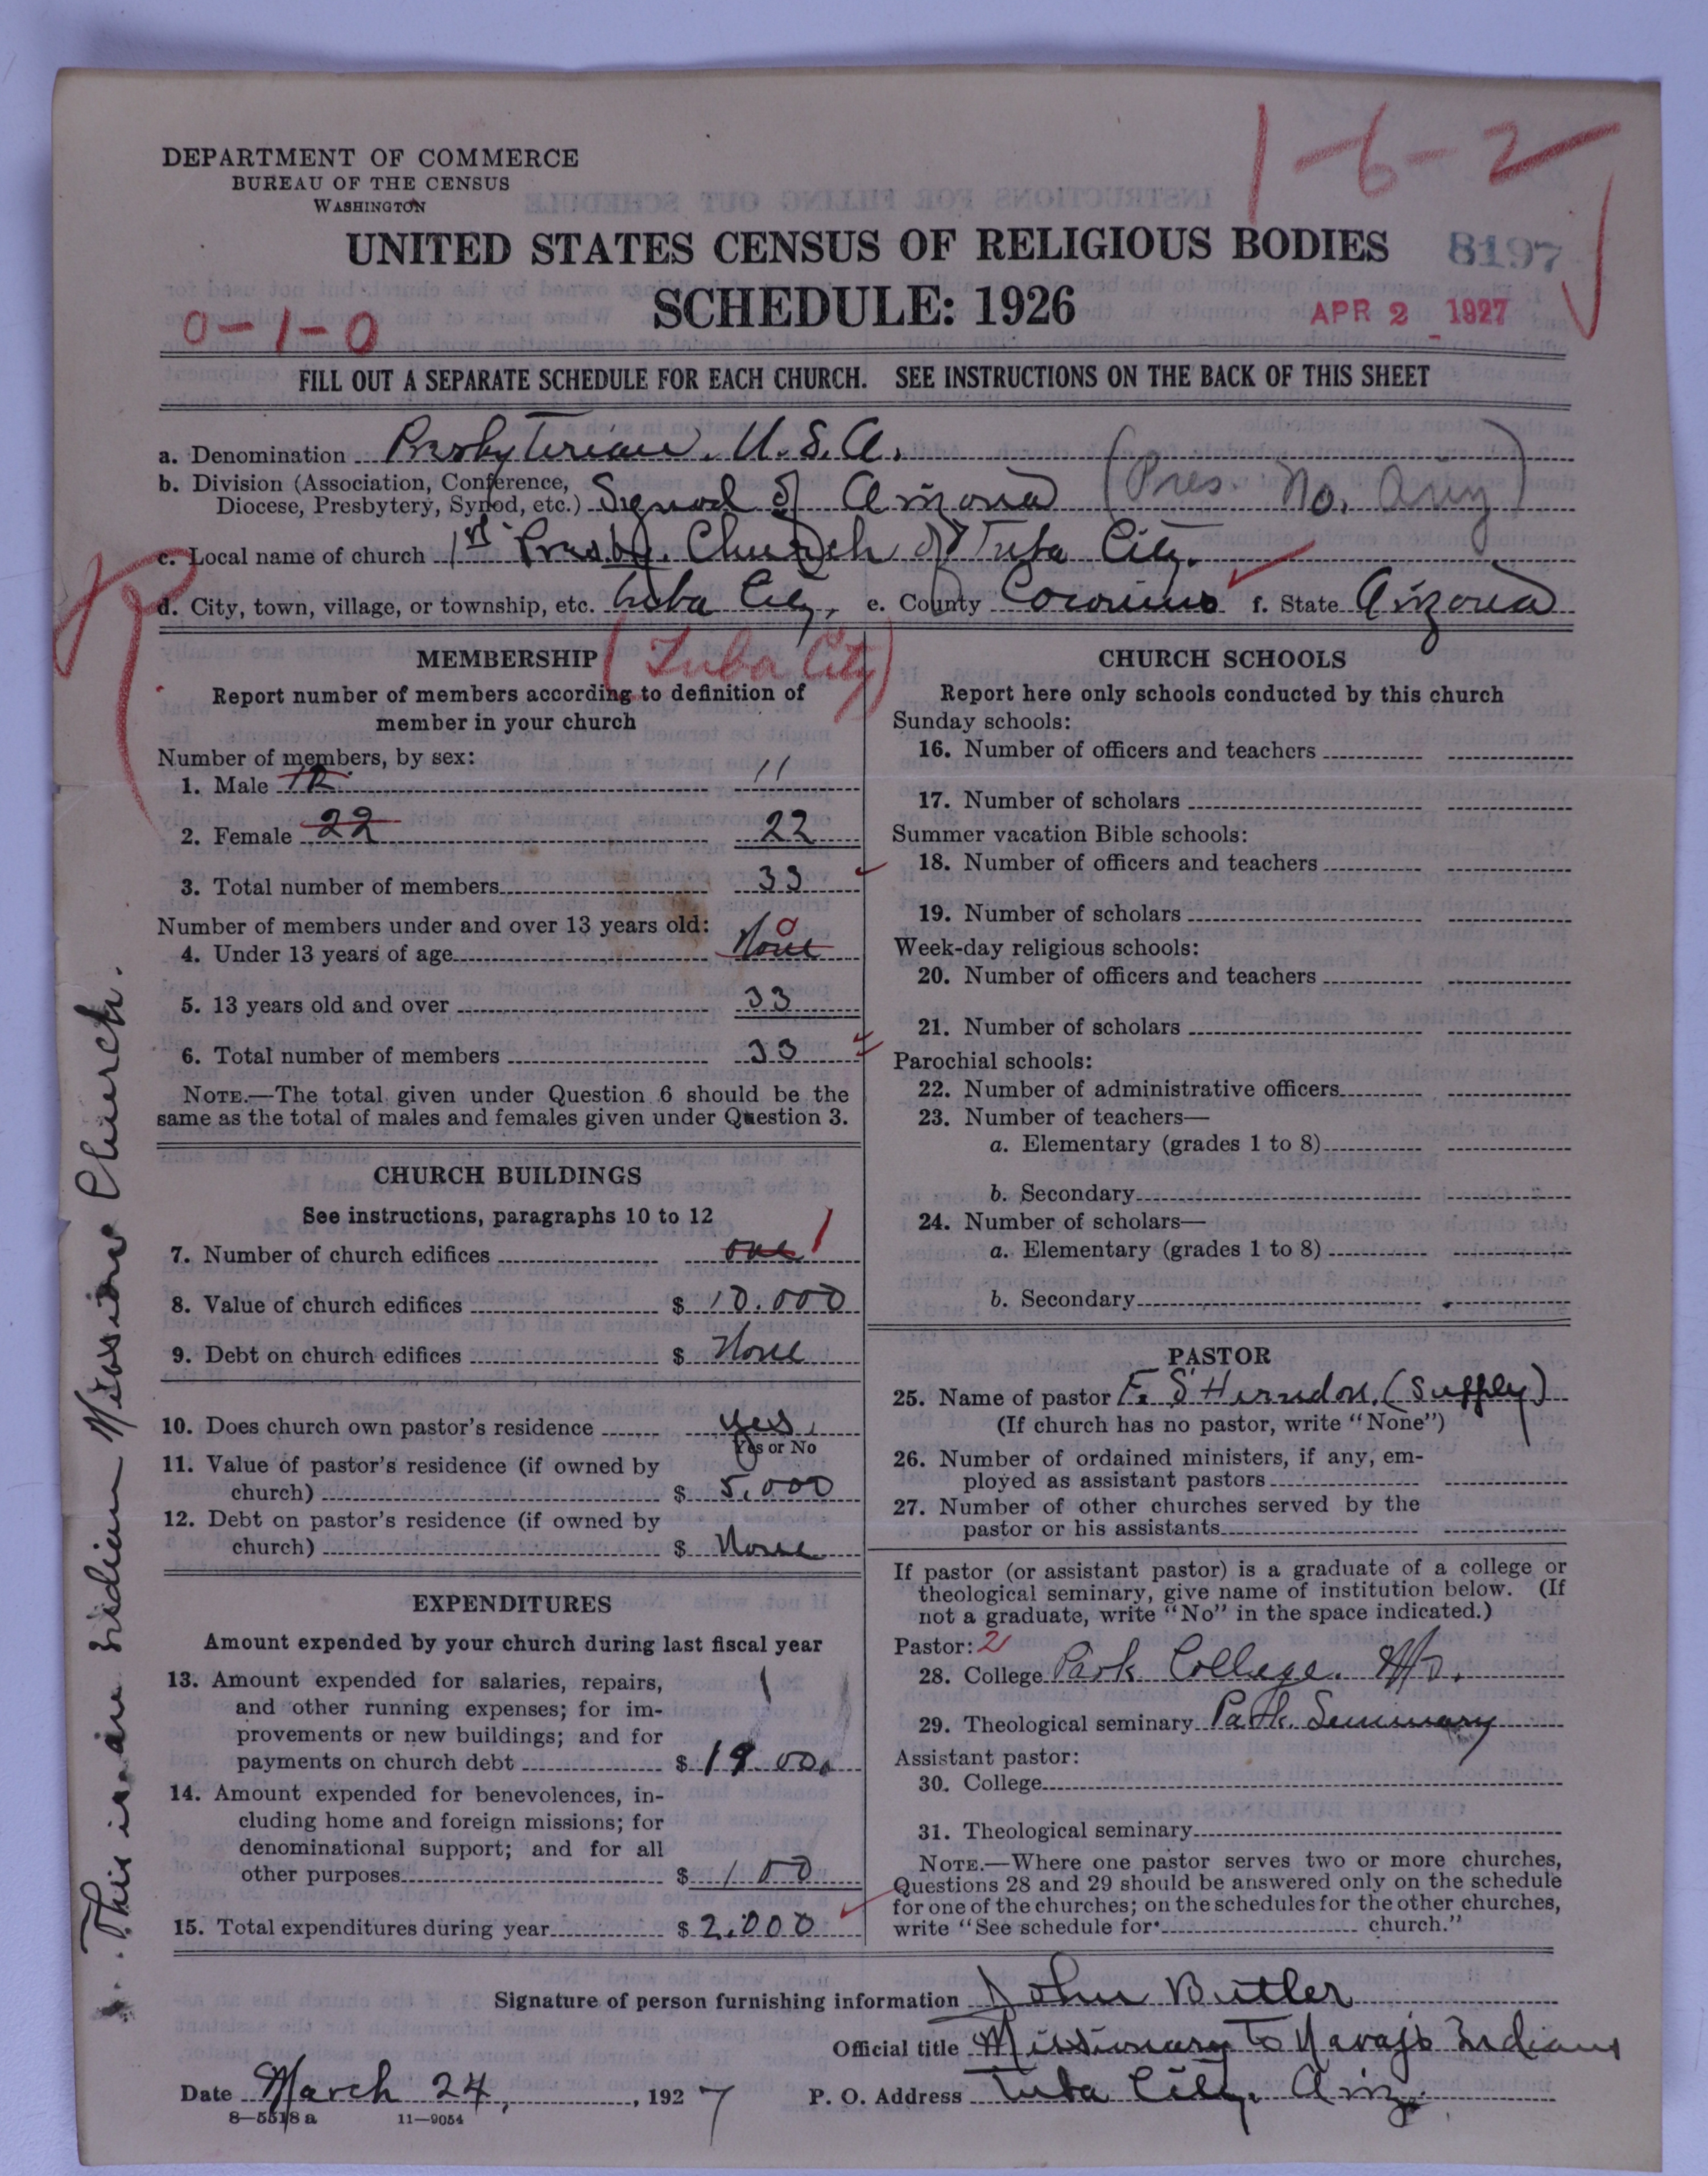 1-6-2
DEPARTMENT OF COMMERCE
BUREAU OF THE CENSUS
WASHINGTON
UNITED STATES CENSUS OF RELIGIOUS BODIES
8197
SCHEDULE: 1926
APR 2 1927
0-1-0
FILL OUT A SEPARATE SCHEDULE FOR EACH CHURCH. SEE INSTRUCTIONS ON THE BACK OF THIS SHEET
a. Denomination Presbyterian. U.S.A.
b. Division (Association, Conference,
Diocese, Presbytery, Synod, etc.) Synod of Arizona (Pres. No. Ariz)
c. Local name of church 1st Presby. Church of Tuba City.
d. City, town, village, or township, etc. Tuba City, e. County Coconino f. State Arizona
MEMBERSHIP (Tuba City)
Report number of members according to definition of
member in your church
Number of members, by sex:
1. Male 12 11
2. Female 22 22
3. Total number of members 33
Number of members under and over 13 years old:
4. Under 13 years of age None 0
5. 13 years old and over 33
6. Total number of members 33
NOTE.—The total given under Question 6 should be the
same as the total of males and females given under Question 3.
CHURCH BUILDINGS
See instructions, paragraphs 10 to 12
7. Number of church edifices one 1
8. Value of church edifices $ 10.000
9. Debt on church edifices $ None
10. Does church own pastor's residence yes.
Yes or No
11. Value of pastor's residence (if owned by
church) $ 5.000
12. Debt on pastor's residence (if owned by
church) $ None
EXPENDITURES
Amount expended by your church during last fiscal year
13. Amount expended for salaries, repairs,
and other running expenses; for im-
provements or new buildings; and for
payments on church debt $ 19 00.
14. Amount expended for benevolences, in-
cluding home and foreign missions; for
denominational support; and for all
other purposes $ 100
15. Total expenditures during year $ 2.000
CHURCH SCHOOLS
Report here only schools conducted by this church
Sunday schools:
16. Number of officers and teachers
17. Number of scholars
Summer vacation Bible schools:
18. Number of officers and teachers
19. Number of scholars
Week-day religious schools:
20. Number of officers and teachers
21. Number of scholars
Parochial schools:
22. Number of administrative officers
23. Number of teachers—
a. Elementary (grades 1 to 8)
b. Secondary
24. Number of scholars—
a. Elementary (grades 1 to 8)
b. Secondary
PASTOR
25. Name of pastor F. S Herndon. (Supply)
(If church has no pastor, write "None")
26. Number of ordained ministers, if any, em-
ployed as assistant pastors
27. Number of other churches served by the
pastor or his assistants
If pastor (or assistant pastor) is a graduate of a college or
theological seminary, give name of institution below. (If
not a graduate, write "No" in the space indicated.)
Pastor: 2
28. College Park College. Mo.
29. Theological seminary Park. Seminary
Assistant pastor:
30. College
31. Theological seminary
NOTE.—Where one pastor serves two or more churches,
Questions 28 and 29 should be answered only on the schedule
for one of the churches; on the schedules for the other churches,
write "See schedule for church."
Signature of person furnishing information John Butler
Official title Missionary to Navajo Indians
Date March 24, 1927 P. O. Address Tuba City, Ariz.
8—5518 a 11—9054
This is an Indian Mission Church.